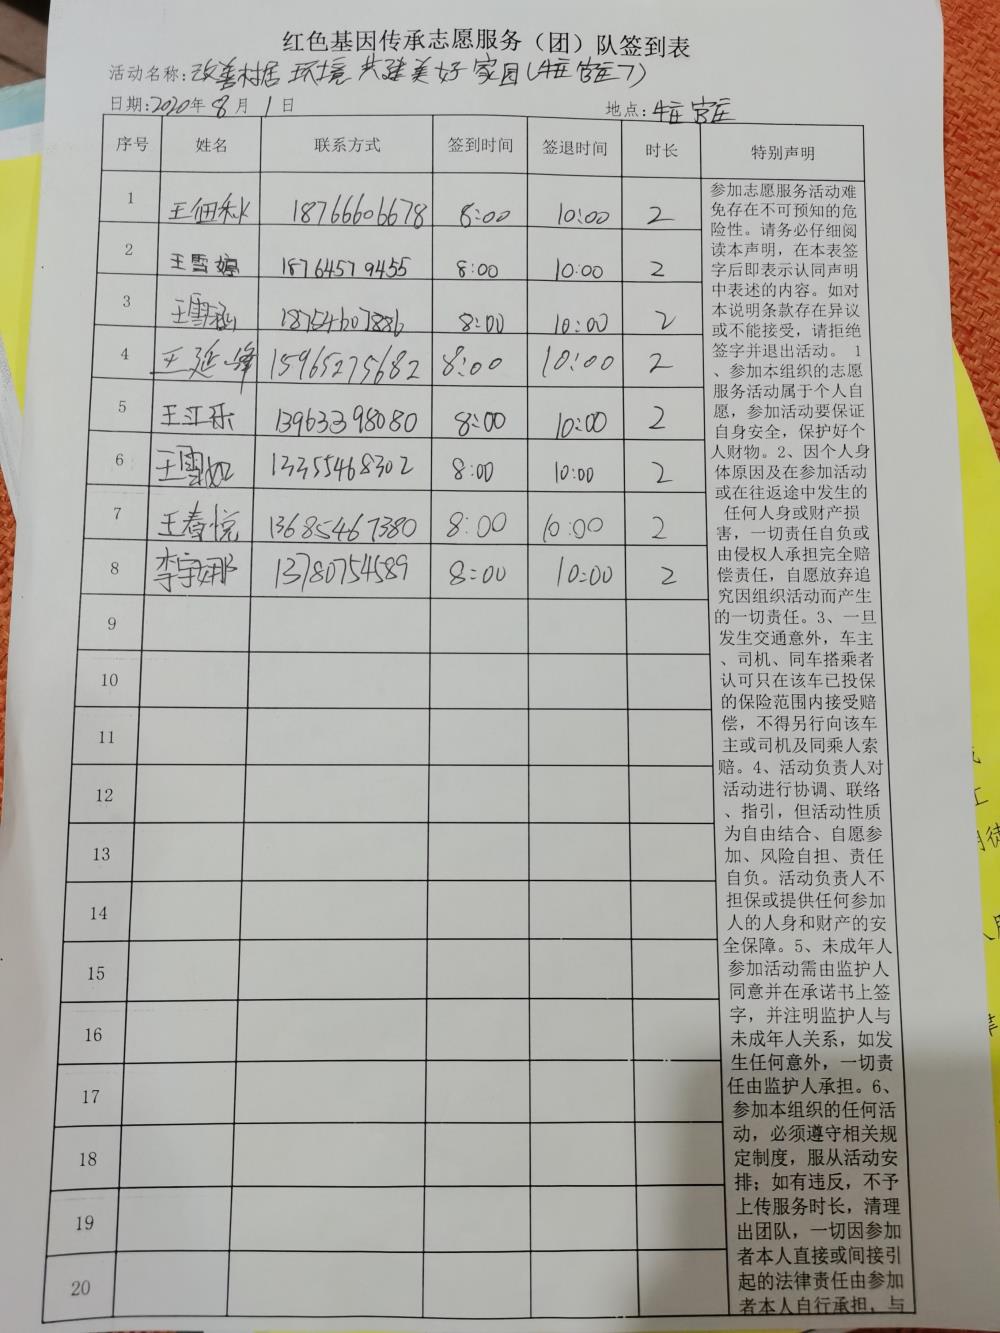 红色基因传承志愿服务（团）队签到表
活动名称:改善村居环境 共建美好家园(
日期:2020年8月1日 地点:
序号 姓名 联系方式 签到时间 签退时间 时长 特别声明
1 王佃秋 18766606678 8:00 10:00 2
2 王雪婷 18764579455 8:00 10:00 2
3 王雪涵 18754607886 8:00 10:00 2
4 王延峰 15965275682 8:00 10:00 2
5 王江乐 13963398080 8:00 10:00 2
6 王雪如 13355468302 8:00 10:00 2
7 王春悦 13685467380 8:00 10:00 2
8 李宇娜 13780754589 8:00 10:00 2
9
10
11
12
13
14
15
16
17
18
19
20
参加志愿服务活动难
免存在不可预知的危
险性。请务必仔细阅
读本声明，在本表签
字后即表示认同声明
中表述的内容。如对
本说明条款存在异议
或不能接受，请拒绝
签字并退出活动。 1
、参加本组织的志愿
服务活动属于个人自
愿，参加活动要保证
自身安全，保护好个
人财物。2、因个人身
体原因及在参加活动
或在往返途中发生的
任何人身或财产损
害，一切责任自负或
由侵权人承担完全赔
偿责任，自愿放弃追
究因组织活动而产生
的一切责任。3、一旦
发生交通意外，车主
、司机、同车搭乘者
认可只在该车已投保
的保险范围内接受赔
偿，不得另行向该车
主或司机及同乘人索
赔。4、活动负责人对
活动进行协调、联络
、指引，但活动性质
为自由结合、自愿参
加、风险自担、责任
自负。活动负责人不
担保或提供任何参加
人的人身和财产的安
全保障。5、未成年人
参加活动需由监护人
同意并在承诺书上签
字，并注明监护人与
未成年人关系，如发
生任何意外，一切责
任由监护人承担。6、
参加本组织的任何活
动，必须遵守相关规
定制度，服从活动安
排；如有违反，不予
上传服务时长，清理
出团队，一切因参加
者本人直接或间接引
起的法律责任由参加
者本人自行承担，与